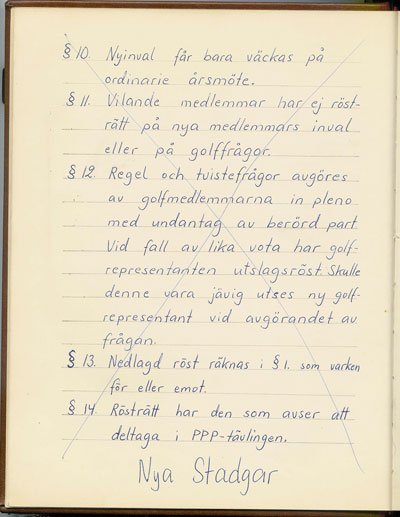 § 10. Nyinval får bara väckas på
ordinarie årsmöte.
§ 11. Vilande medlemmar har ej röst-
rätt på nya medlemmars inval
eller på golffrågor.
§ 12. Regel och tvistefrågor avgöres
av golfmedlemmarna in pleno
med undantag av berörd part.
Vid fall av lika vota har golf-
representanten utslagsröst. Skulle
denne vara jävig utses ny golf-
representant vid avgörandet av
frågan.
§ 13. Nedlagd röst räknas i § 1. som varken
för eller emot.
§ 14. Rösträtt har den som avser att
deltaga i PPP-tävlingen.
Nya Stadgar